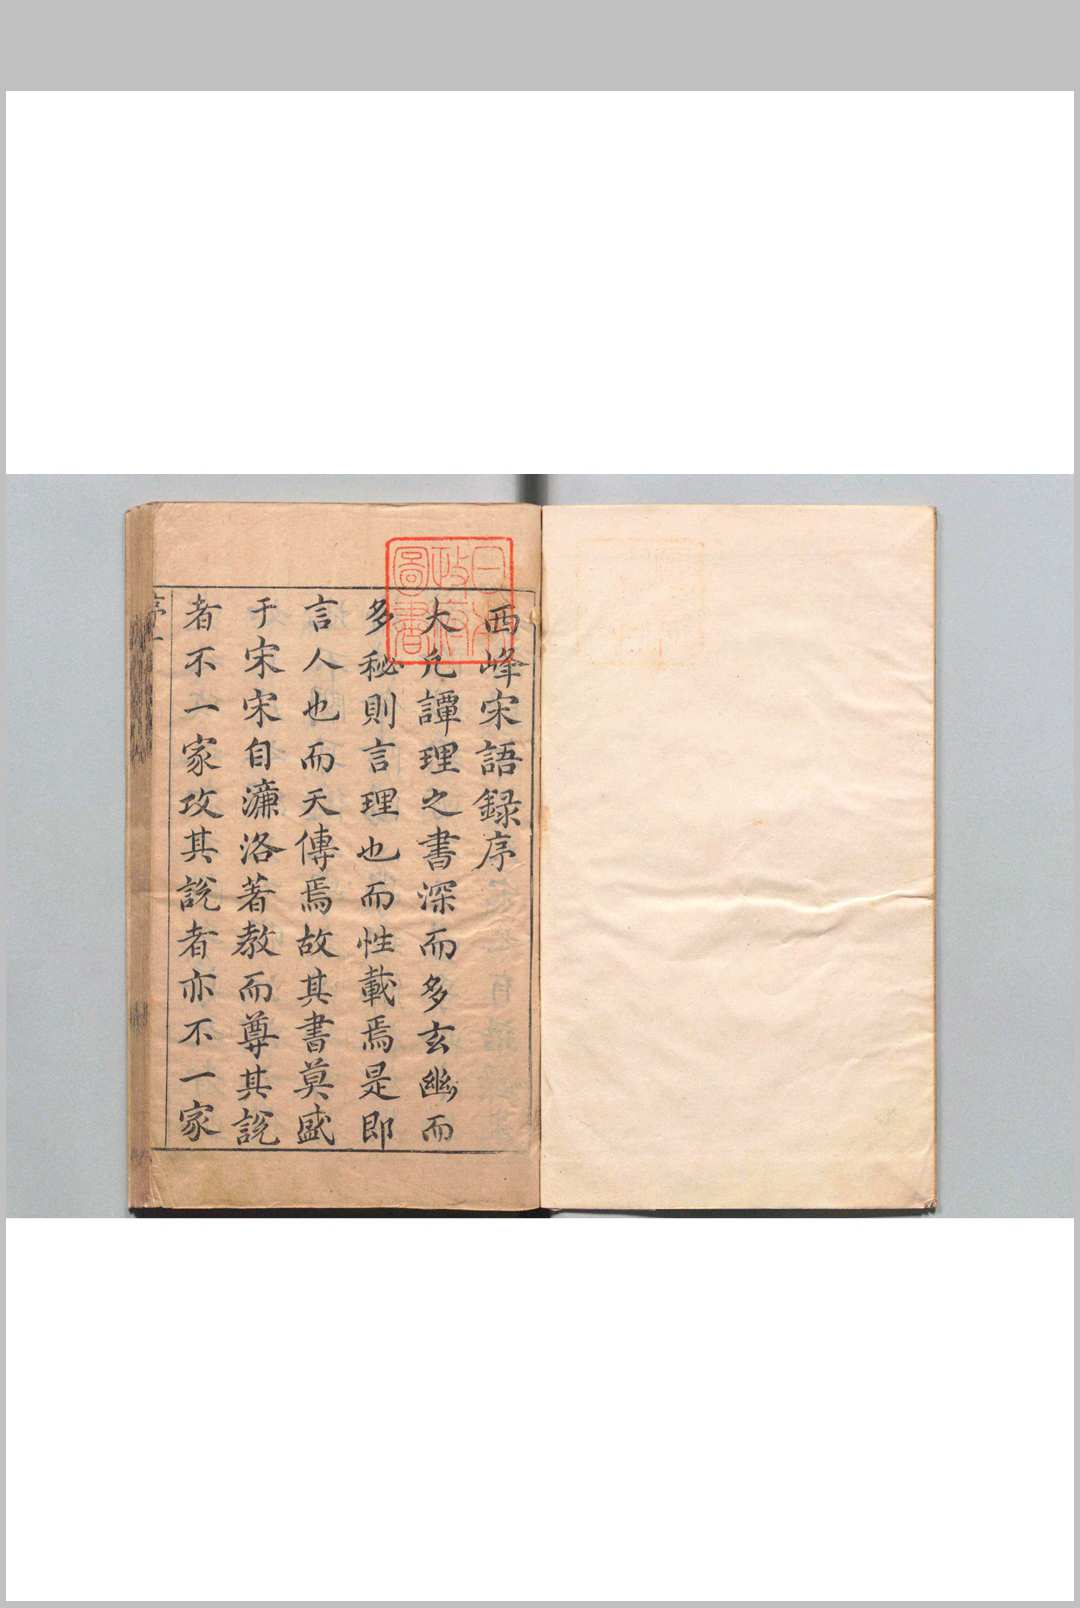 西峰宋語録序
大凡譚理之書深而多玄幽而
多秘則言理也而性載焉是即
言人也而天傳焉故其書莫盛
于宋宋自濂洛著教而尊其說
者不一家攻其說者亦不一家
序一
日本
政府
圖書